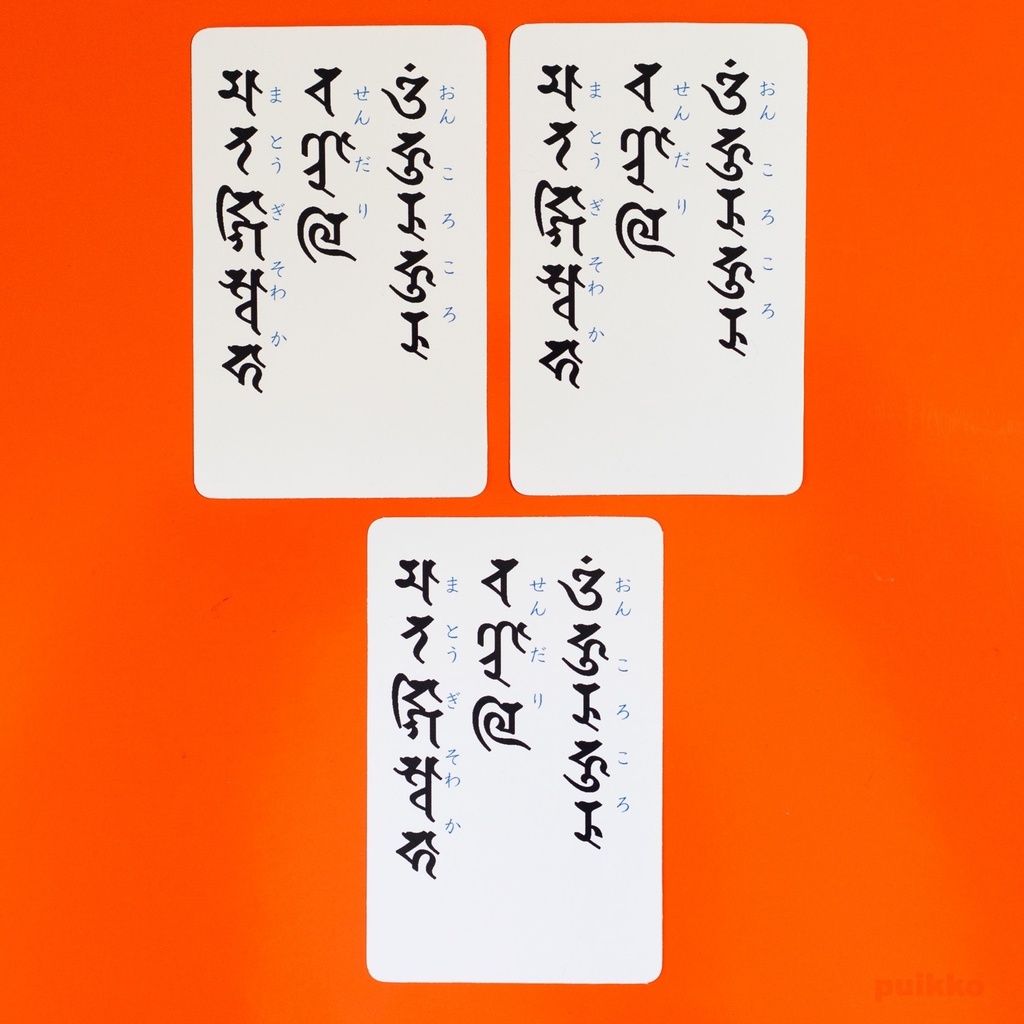 𑖌𑖼𑖮𑖲𑖨𑖲𑖮𑖲𑖨𑖲
おん ころ ころ
𑖓𑖜𑖿𑖚𑖯𑖩𑖰
せんだり
𑖦𑖯𑖝𑖒𑖿𑖐𑖰𑖭𑖿𑖪𑖯𑖮𑖯
まとうぎ そわか
𑖌𑖼𑖮𑖲𑖨𑖲𑖮𑖲𑖨𑖲
おん ころ ころ
𑖓𑖜𑖿𑖚𑖯𑖩𑖰
せんだり
𑖦𑖯𑖝𑖒𑖿𑖐𑖰𑖭𑖿𑖪𑖯𑖮𑖯
まとうぎ そわか
𑖌𑖼𑖮𑖲𑖨𑖲𑖮𑖲𑖨𑖲
おん ころ ころ
𑖓𑖜𑖿𑖚𑖯𑖩𑖰
せんだり
𑖦𑖯𑖝𑖒𑖿𑖐𑖰𑖭𑖿𑖪𑖯𑖮𑖯
まとうぎ そわか
puikko